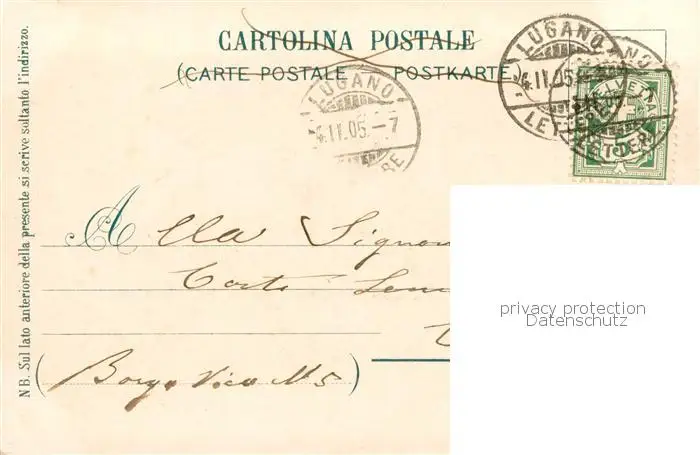 CARTOLINA POSTALE
(CARTE POSTALE POSTKARTE)
LUGANO
4.II.05.–7
LUGANO
4.II.05
LETT.
HELVETIA
NB. Sul lato anteriore della presente si scrive soltanto l'indirizzo.
Alla Signor
(Borgo Vico N 5)
privacy protection
Datenschutz